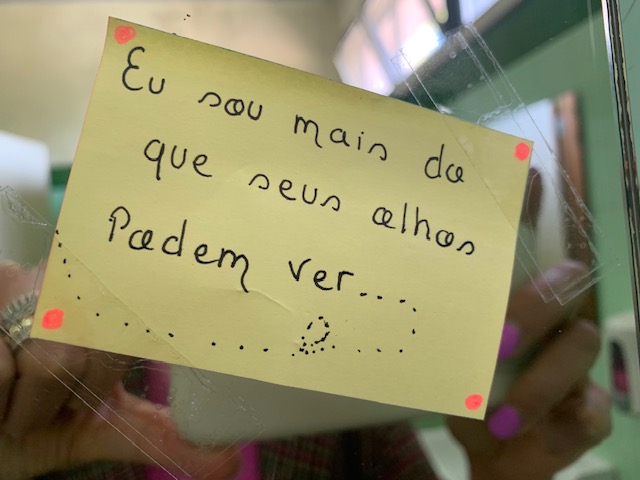 Eu sou mais do
que seus olhos
Podem ver...